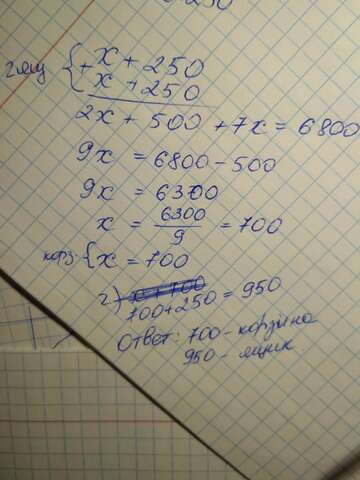 250
2 ящ { x + 250
+ x + 250
2x + 500 + 7x = 6800
9x = 6800 - 500
9x = 6300
x = 6300/9 = 700
корз. { x = 700
2) x + 700
700 + 250 = 950
Ответ: 700 - корзина
950 - ящик